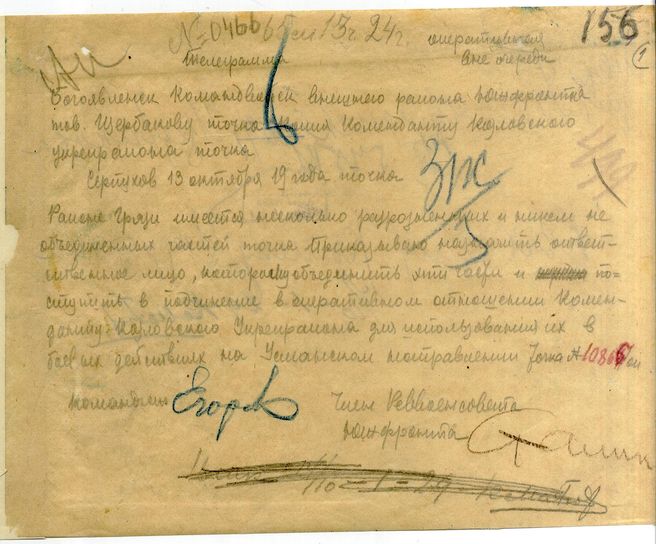 156
№ 0466 13ч 24г.
оперативная
Телеграмма вне очереди
1
Богоявленск Командвойск внешнего района Южфронта
тов. Щербакову точка Копия Коменданту Козловского
укрепрайона точка
Серпухов 13 октября 19 года точка
Районе Грязи имеется несколько разрозненных и никем не
объединенных частей точка Приказываю назначить ответ-
ственное лицо, которому объединить эти части и по-
ступить в подчинение в оперативном отношении Комен-
данту Козловского Укрепрайона для использования их в
боевых действиях на Усманском направлении точка №
Командюж Егоров Член Реввоенсовета
Южфронта Сталин